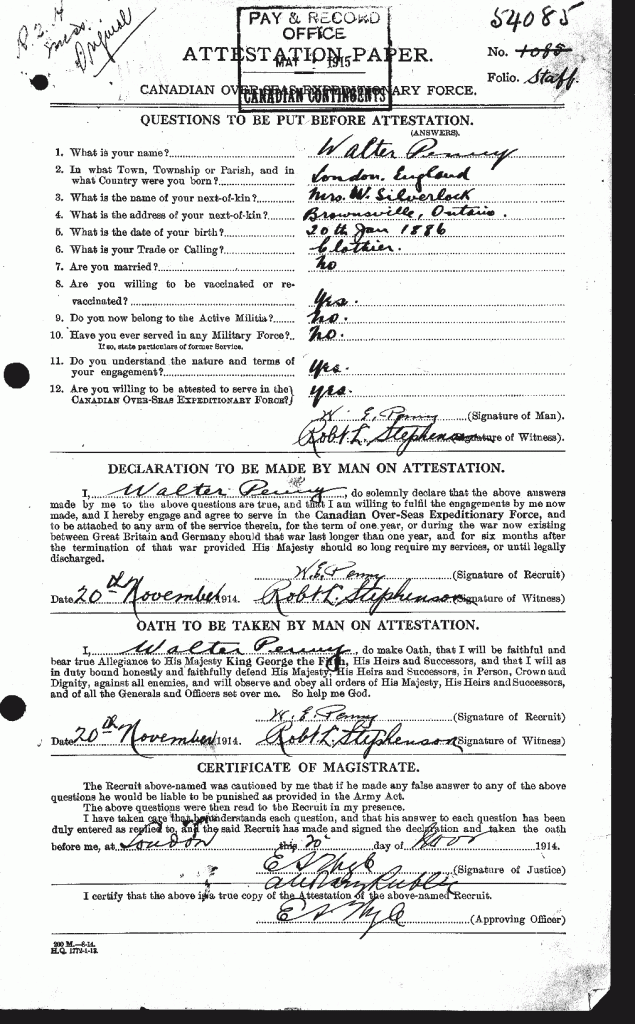 54085
PAY & RECORD
OFFICE
MAY 1915
CANADIAN CONTINGENTS
Original
ATTESTATION PAPER.
No. 1085
Folio. Staff.
CANADIAN OVER-SEAS EXPEDITIONARY FORCE.
QUESTIONS TO BE PUT BEFORE ATTESTATION.
(ANSWERS).
1. What is your name? Walter Penny
2. In what Town, Township or Parish, and in
what Country were you born? London. England
3. What is the name of your next-of-kin? Mrs. W. Silverlock
4. What is the address of your next-of-kin? Brownsville, Ontario.
5. What is the date of your birth? 20th Jan 1886
6. What is your Trade or Calling? Clothier.
7. Are you married? No
8. Are you willing to be vaccinated or re-
vaccinated? Yes.
9. Do you now belong to the Active Militia? No.
10. Have you ever served in any Military Force? No.
If so, state particulars of former Service.
11. Do you understand the nature and terms of
your engagement? Yes.
12. Are you willing to be attested to serve in the
CANADIAN OVER-SEAS EXPEDITIONARY FORCE? Yes.
W. E. Penny (Signature of Man).
Robt L. Stephenson (Signature of Witness).
DECLARATION TO BE MADE BY MAN ON ATTESTATION.
I, Walter Penny, do solemnly declare that the above answers
made by me to the above questions are true, and that I am willing to fulfil the engagements by me now
made, and I hereby engage and agree to serve in the Canadian Over-Seas Expeditionary Force, and
to be attached to any arm of the service therein, for the term of one year, or during the war now existing
between Great Britain and Germany should that war last longer than one year, and for six months after
the termination of that war provided His Majesty should so long require my services, or until legally
discharged.
W. E. Penny (Signature of Recruit)
Date 20th November 1914. Robt L. Stephenson (Signature of Witness)
OATH TO BE TAKEN BY MAN ON ATTESTATION.
I, Walter Penny, do make Oath, that I will be faithful and
bear true Allegiance to His Majesty King George the Fifth, His Heirs and Successors, and that I will as
in duty bound honestly and faithfully defend His Majesty, His Heirs and Successors, in Person, Crown and
Dignity, against all enemies, and will observe and obey all orders of His Majesty, His Heirs and Successors,
and of all the Generals and Officers set over me. So help me God.
W. E. Penny (Signature of Recruit)
Date 20th November 1914. Robt L. Stephenson (Signature of Witness)
CERTIFICATE OF MAGISTRATE.
The Recruit above-named was cautioned by me that if he made any false answer to any of the above
questions he would be liable to be punished as provided in the Army Act.
The above questions were then read to the Recruit in my presence.
I have taken care that he understands each question, and that his answer to each question has been
duly entered as replied to, and the said Recruit has made and signed the declaration and taken the oath
before me, at London this 20 day of Nov 1914.
(Signature of Justice)
a Notary Public
I certify that the above is a true copy of the Attestation of the above-named Recruit.
(Approving Officer)
200 M.—8-14.
H.Q. 1772-1-13.